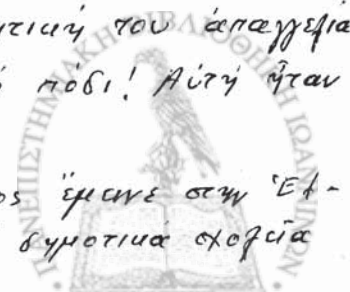 ητική του ἀπαγγελία
πόδι! Αὐτή ἦταν
ος ἔμεινε στήν Ἑλ-
δημοτικά σχολεῖα
ΠΑΝΕΠΙΣΤΗΜΙΑΚΗ ΒΙΒΛΙΟΘΗΚΗ ΙΩΑΝΝΙΝΩΝ